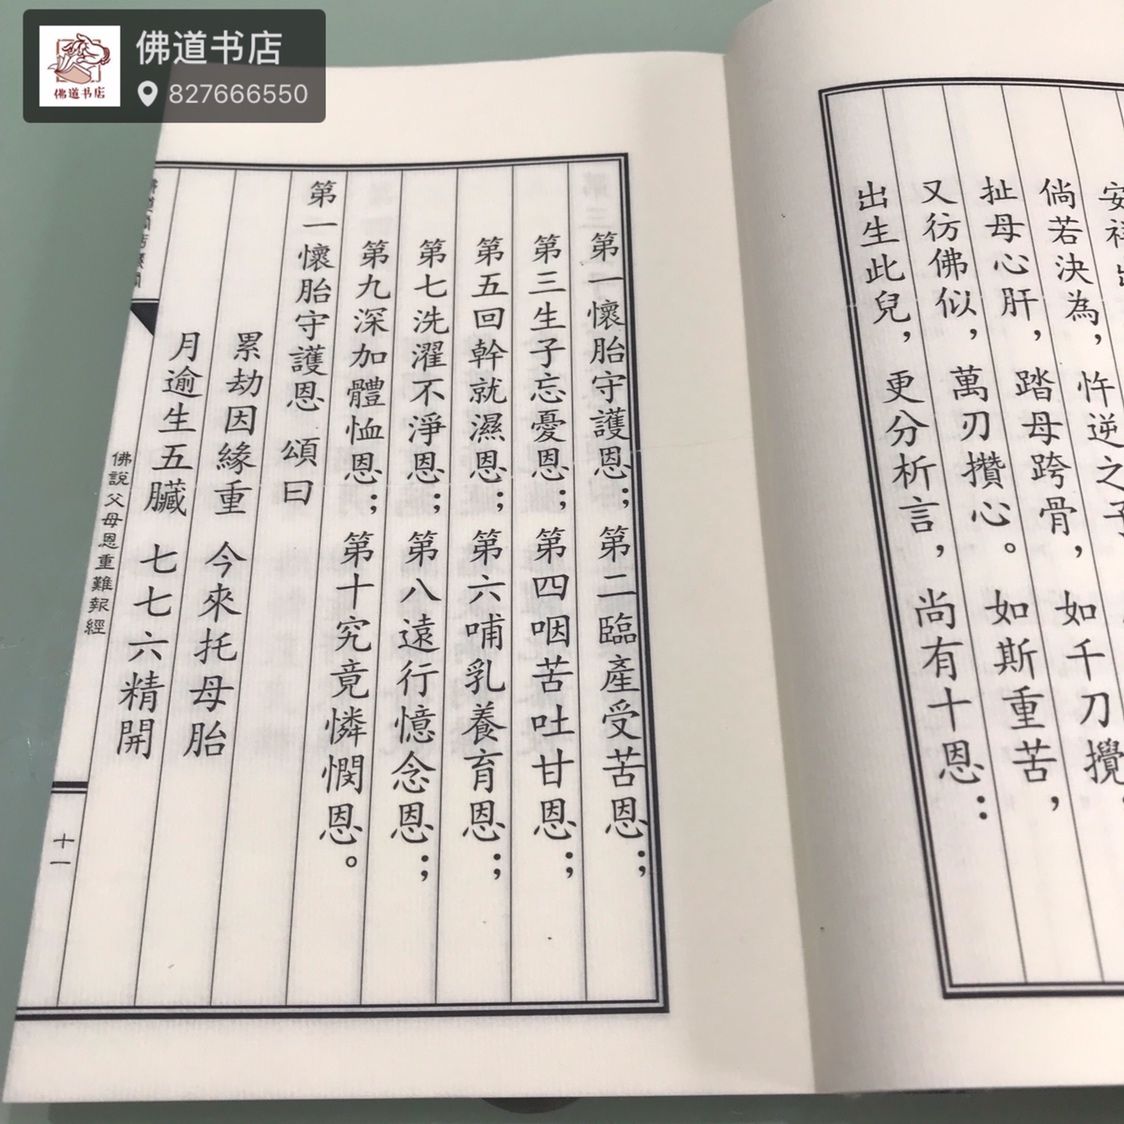 佛道书店
827666550
佛道书店
安
倘若決為，忤逆之子，如千刀攪，
扯母心肝，踏母跨骨，如斯重苦，
又彷佛似，萬刃攢心。
出生此兒，更分析言，尚有十恩：
第一懷胎守護恩；第二臨產受苦恩；
第三生子忘憂恩；第四咽苦吐甘恩；
第五回幹就濕恩；第六哺乳養育恩；
第七洗濯不淨恩；第八遠行憶念恩；
第九深加體恤恩；第十究竟憐憫恩。
第一懷胎守護恩 頌曰
累劫因緣重 今來托母胎
月逾生五臟 七七六精開
佛說父母恩重難報經
十一